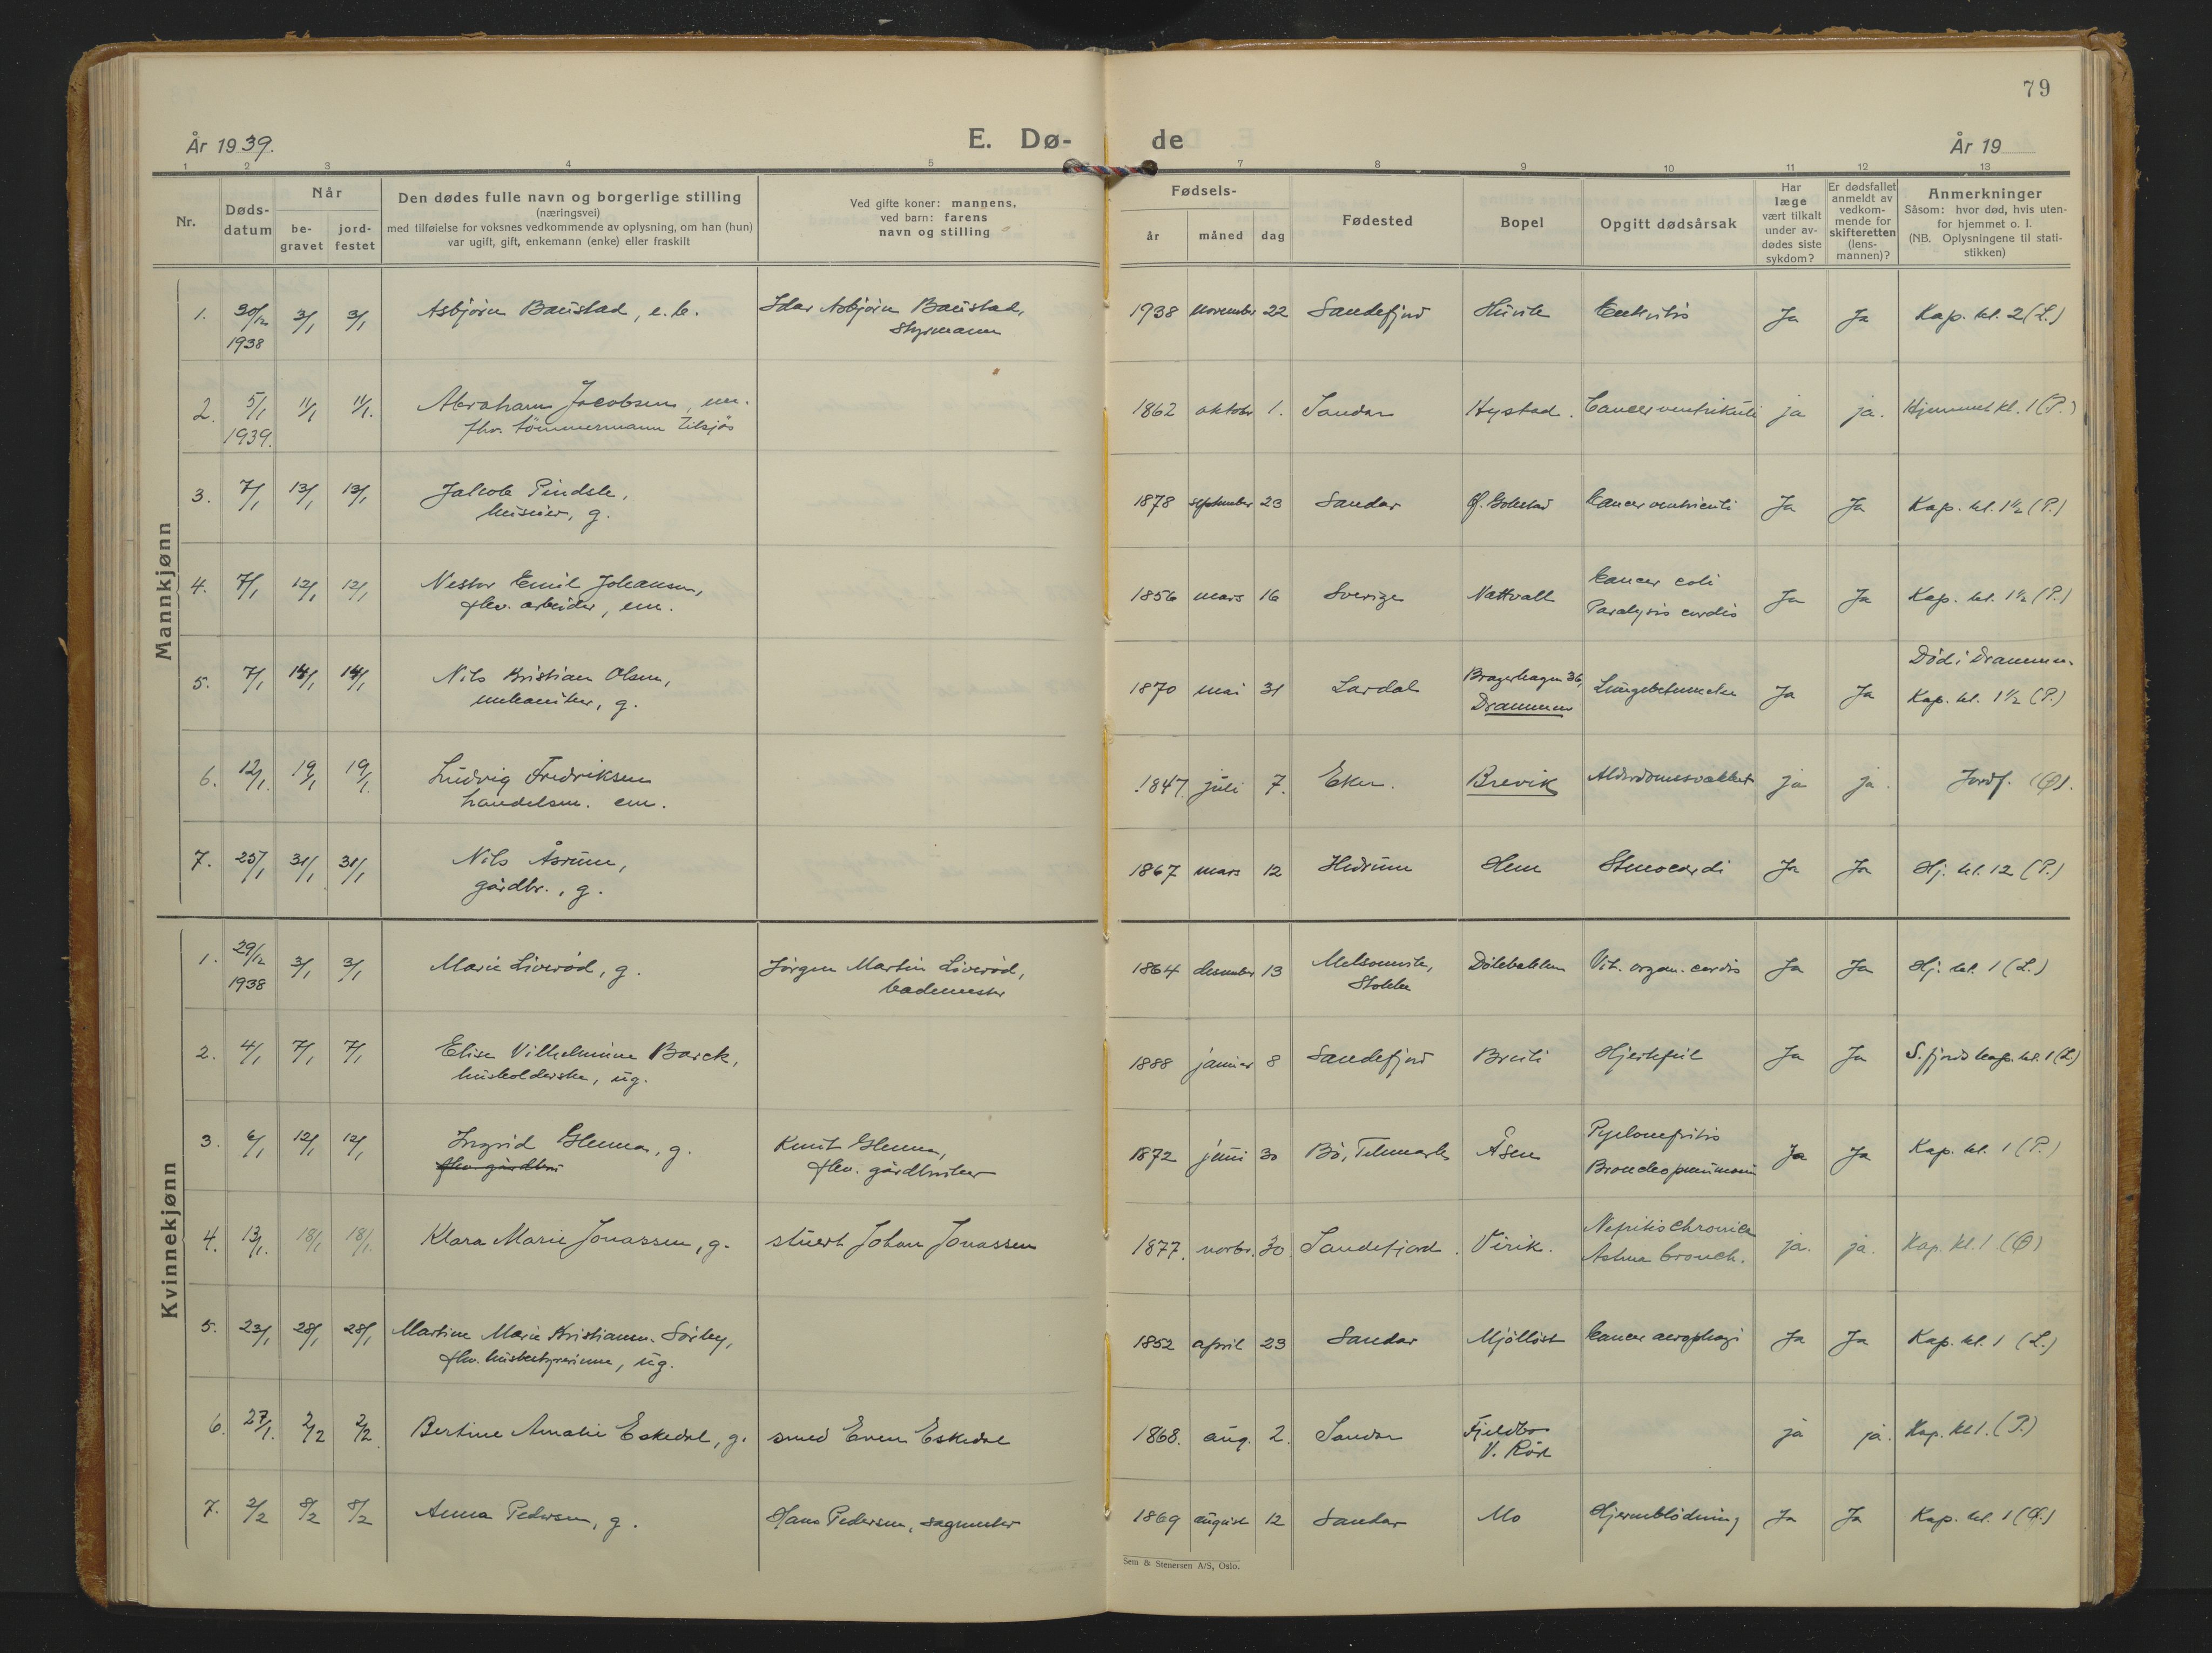 79
År 1939.
E. Dø-
de
År 19
1 2 3 4 5 7 8 9 10 11 12 13
Nr.
Døds-
datum
Når
be-
gravet
jord-
festet
Den dødes fulle navn og borgerlige stilling
(næringsvei)
med tilføielse for voksnes vedkommende av oplysning, om han (hun)
var ugift, gift, enkemann (enke) eller fraskilt
Ved gifte koner: mannens,
ved barn: farens
navn og stilling
Fødsels-
år
måned
dag
Fødested
Bopel
Opgitt dødsårsak
Har
læge
vært tilkalt
under av-
dødes siste
sykdom?
Er dødsfallet
anmeldt av
vedkom-
mende for
skifteretten
(lens-
mannen)?
Anmerkninger
Såsom: hvor død, hvis uten-
for hjemmet o. l.
(NB. Oplysningene til stati-
stikken)
Mannkjønn
1. 30/12 3/1 3/1 Asbjørn Baustad, e. b. Idar Asbjørn Baustad, 1938 november 22 Sandefjord Ja Ja Kap. kl. 2 (L.)
1938 Styrmann
2. 5/1 11/1 11/1. Abraham Jacobsen, em. 1862 oktobr 1. Sandar Hystad. Cancer ventrikuli ja ja. Hjemmet kl. 1 (P.)
1939. fhv. tömmermann tilsjøs
3. 7/1 13/1 13/1 Jakob Pindsle, 1878 september 23 Sandar Ø. Gokstad Cancer ventriculi Ja Ja Kap. kl. 1 1/2 (P.)
huseier, g.
4. 7/1 12/1 12/1 Nestor Emil Johansen, 1856 mars 16 Sverige Nattvall Cancer coli Ja Ja Kap. kl. 1 1/2 (P.)
fhv. arbeider, em. Paralysis cordis
5. 7/1 14/1 14/1 Nils Kristian Olsen, 1870 mai 31 Lardal Bragerhagen 36, Lungebetennelse Ja Ja Død i Drammen.
mekaniker, g. Drammen Kap. kl. 1 1/2 (P.)
6. 12/1. 19/1 19/1. Ludvig Fredriksen 1847. juli 7. Eker. Brevik Alderdomssvakhet ja ja. Jordf. (Ø).
handelsm. em.
7. 25/1 31/1 31/1 Nils Åsrum, 1867 mars 12 Hedrum Hem Stenocardi Ja Ja Hj. kl. 12 (P.)
gårdbr., g.
Kvinnekjønn
1. 29/12 3/1 3/1 Marie Liverød, g. Jörgen Martin Liverød, 1864 desember 13 Melsomvik, Dölebakken Vit. organ. cordis Ja Ja Hj. kl. 1 (L.)
1938 bademester Stokke
2. 4/1 7/1 7/1 Elise Vilhelmine Barck, 1888 januar 8 Sandefjord Breili Hjertefeil Ja Ja S.fjords kap. kl. 1 (L)
husholderske, ug.
3. 6/1 12/1 12/1 Ingrid Glenna, g. Knut Glenna, 1872 juni 30 Bö, Telemark Åsen Pyelonefritis Ja Ja Kap. kl. 1 (P.)
fhv. gårdbru fhv. gårdbruker Bronchopneumoni
4. 13/1. 18/1 18/1. Klara Marie Jonassen, g. stuert Johan Jonassen 1877. novbr. 30. Sandefjord. Virik. Nefritis chronica ja. ja. Kap. kl. 1 (Ø)
Astma bronch.
5. 23/1 28/1 28/1 Martine Marie Kristiansen Sörby, 1852 april 23 Sandar Mjölløst Cancer Ja Ja Kap. kl. 1 (L.)
fhv. husbestyrerinne, ug.
6. 27/1. 2/2 2/2 Bertine Amalie Eskedal, g. smed Even Eskedal 1868. aug. 2. Sandar Fjeldbo ja ja. Kap. kl 1. (P.)
V. Röd
7. 2/2 8/2 8/2 Anna Pedersen, g. Hans Pedersen, sagmester 1869 august 12 Sandar Mo Hjerneblödning Ja Ja Kap. kl. 1 (Ø.)
Sem & Stenersen A/S, Oslo.